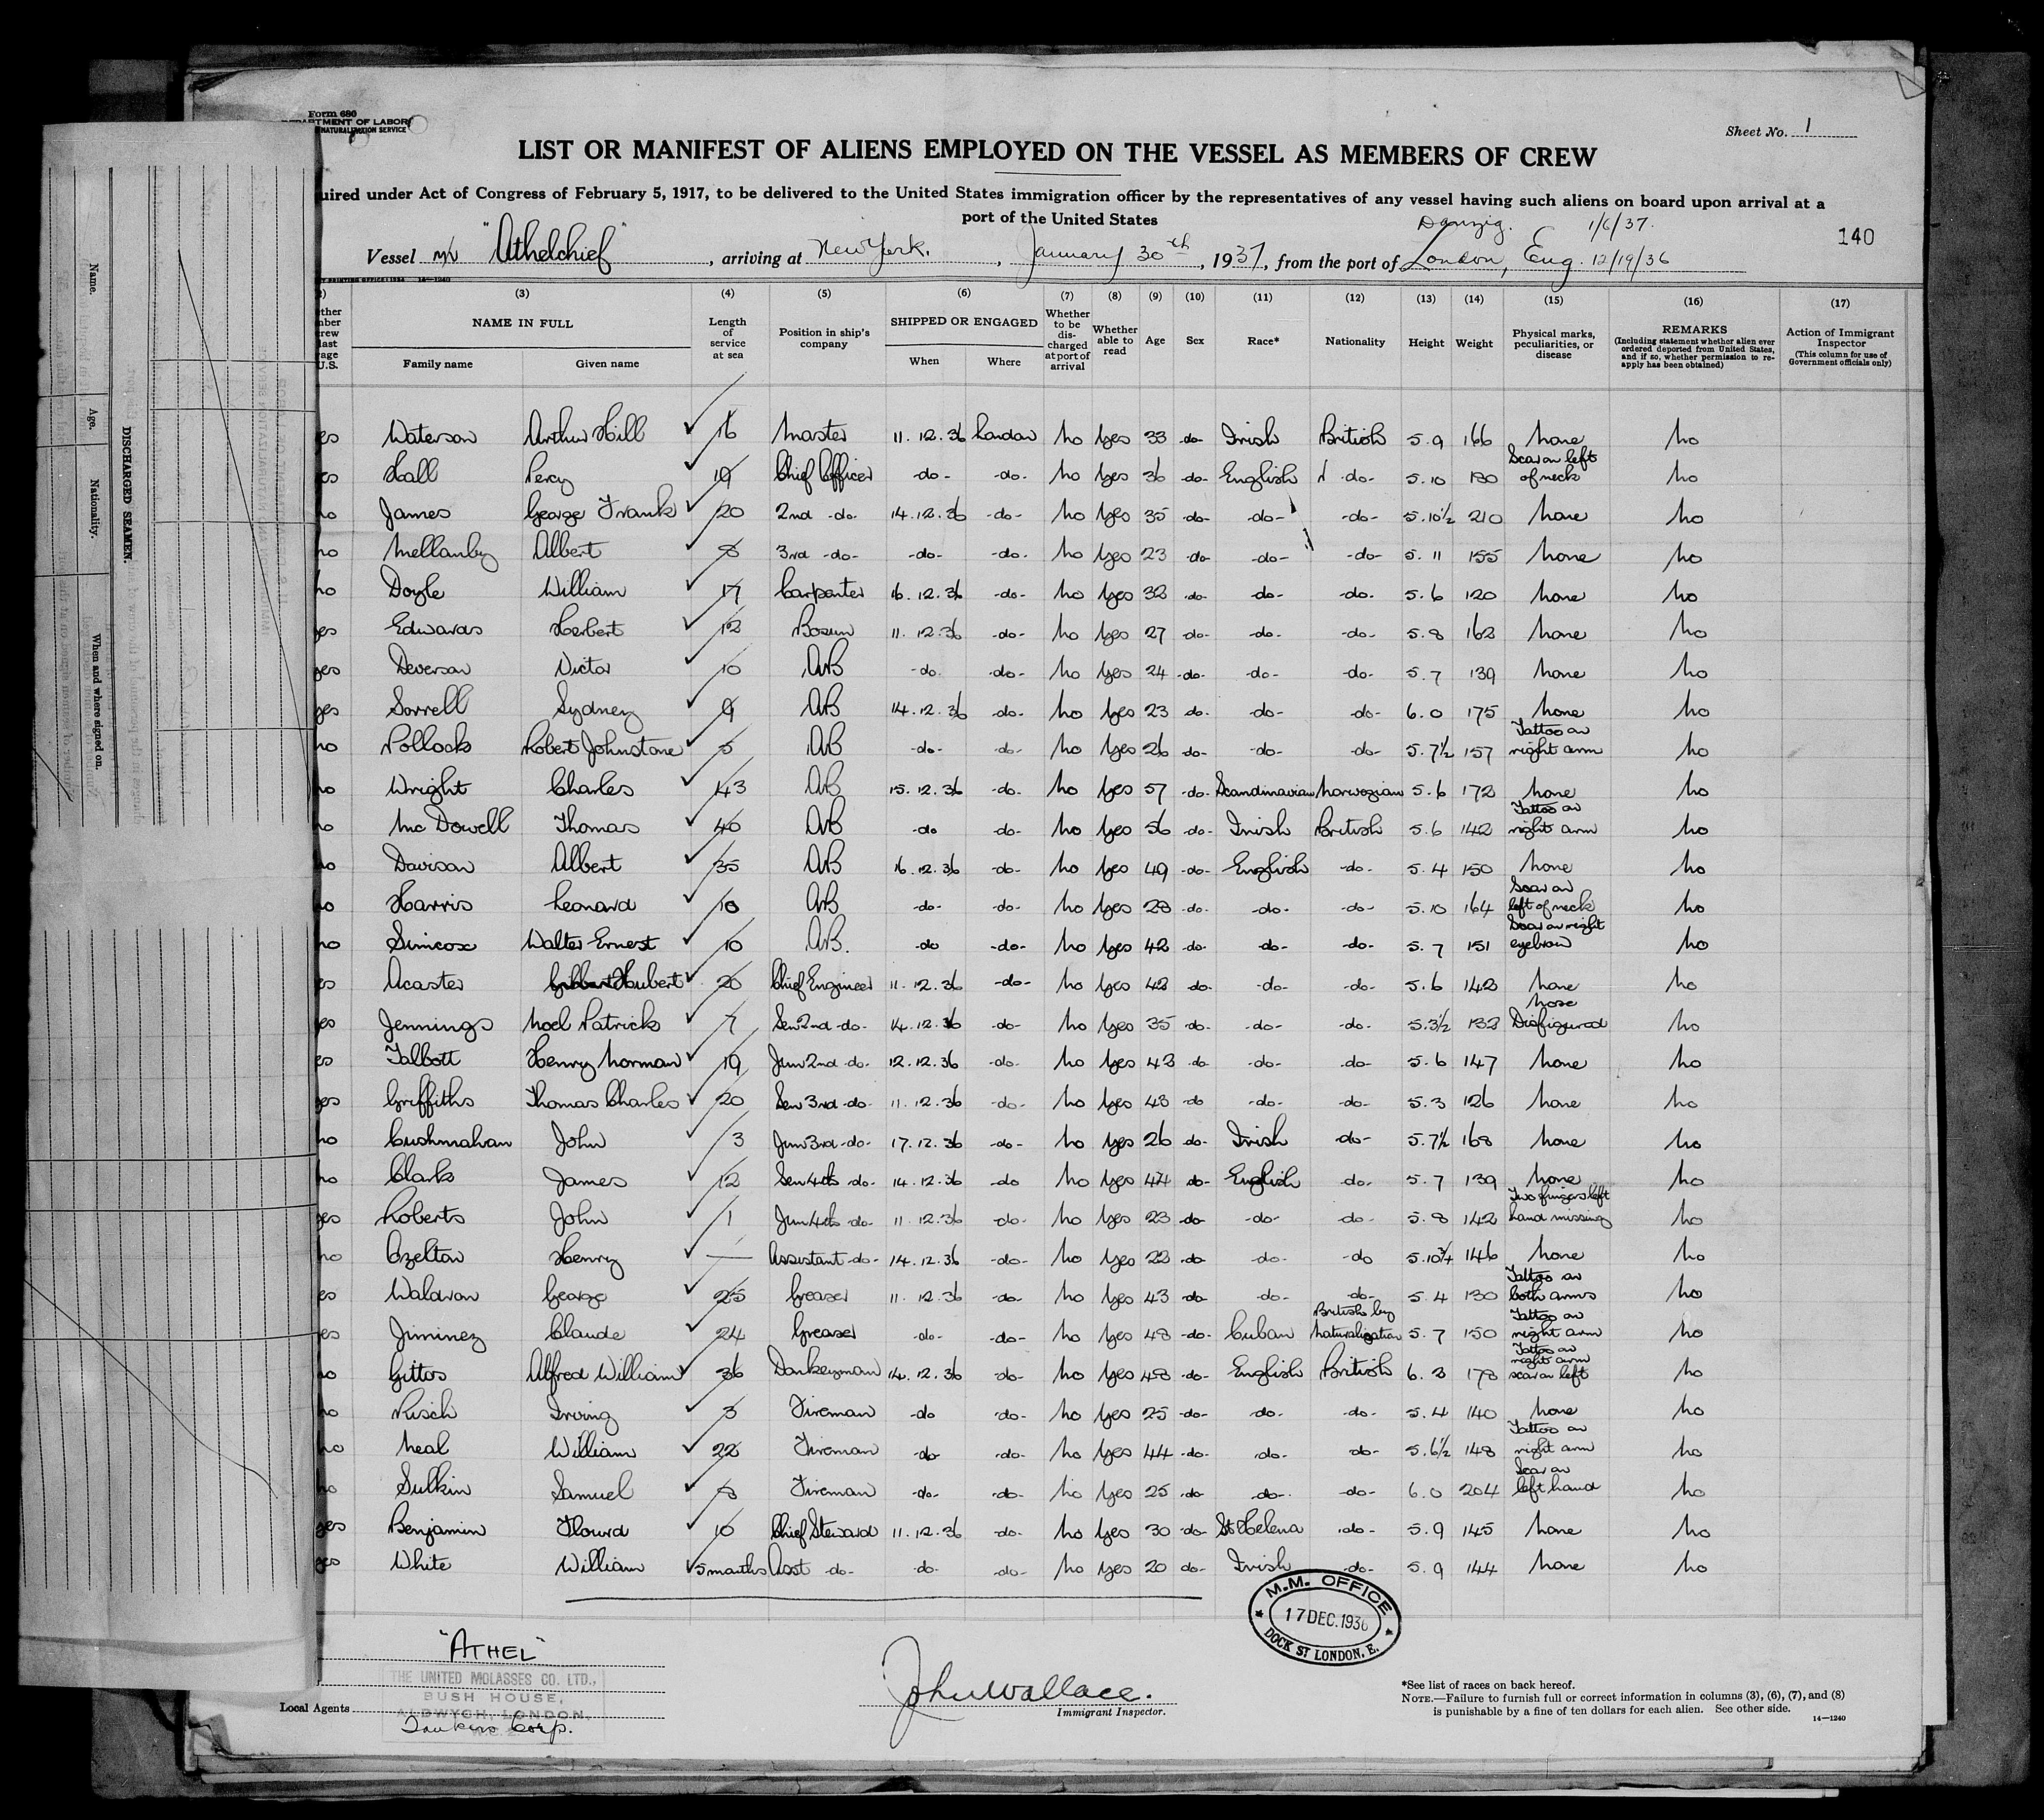 Form 680
DEPARTMENT OF LABOR
NATURALIZATION SERVICE
Sheet No. 1
LIST OR MANIFEST OF ALIENS EMPLOYED ON THE VESSEL AS MEMBERS OF CREW
uired under Act of Congress of February 5, 1917, to be delivered to the United States immigration officer by the representatives of any vessel having such aliens on board upon arrival at a
port of the United States
Danzig. 1/6/37.
140
Vessel m/v "Athelchief", arriving at New York, January 30th, 1937, from the port of London, Eng. 12/19/36
(3) (4) (5) (6) (7) (8) (9) (10) (11) (12) (13) (14) (15) (16) (17)
NAME IN FULL
Family name Given name
Length of service at sea
Position in ship's company
SHIPPED OR ENGAGED
When Where
Whether to be discharged at port of arrival
Whether able to read
Age
Sex
Race*
Nationality
Height
Weight
Physical marks, peculiarities, or disease
REMARKS
(Including statement whether alien ever ordered deported from United States, and if so, whether permission to re-apply has been obtained)
Action of Immigrant Inspector
(This column for use of Government officials only)
es Waterson Arthur Hill ✓ 16 Master 11.12.36 London no yes 33 -do- Irish British 5.9 166 none no
es Hall Percy ✓ 19 Chief Officer -do- -do- no yes 36 -do- English -do- 5.10 180 Scar on left of neck no
no James George Frank ✓ 20 2nd -do- 14.12.36 -do- no yes 35 -do- -do- -do- 5.10½ 210 none no
no Mellanby Albert ✓ 8 3rd -do- -do- -do- no yes 23 -do- -do- -do- 5.11 155 none no
no Doyle William ✓ 17 Carpenter 16.12.36 -do- no yes 32 -do- -do- -do- 5.6 120 none no
yes Edwards Herbert ✓ 12 Bosun 11.12.36 -do- no yes 27 -do- -do- -do- 5.8 162 none no
yes Deverson Victor ✓ 10 AB -do- -do- no yes 24 -do- -do- -do- 5.7 139 none no
yes Sorrell Sydney ✓ 9 AB 14.12.36 -do- no yes 23 -do- -do- -do- 6.0 175 none no
no Pollock Robert Johnstone ✓ 5 AB -do- -do- no yes 26 -do- -do- -do- 5.7½ 157 Tattoo on right arm no
no Wright Charles ✓ 43 AB 15.12.36 -do- no yes 57 -do- Scandinavian Norwegian 5.6 172 none no
no Mc Dowell Thomas ✓ 40 AB -do -do- no yes 56 -do- Irish British 5.6 142 Tattoo on right arm no
no Davison Albert ✓ 35 AB 16.12.36 -do- no yes 49 -do- English -do- 5.4 150 none no
no Harris Leonard ✓ 10 AB -do- -do- no yes 28 -do- -do- -do- 5.10 164 Scar on left of neck no
no Simcox Walter Ernest ✓ 10 AB. -do -do- no yes 42 -do- -do- -do- 5.7 151 Scar on right eyebrow no
es Acaster Hubert ✓ 20 Chief Engineer 11.12.36 -do- no yes 42 -do- -do- -do- 5.6 142 none no
es Jennings Noel Patrick ✓ 7 Sen 2nd -do- 14.12.36 -do- no yes 35 -do- -do- -do- 5.3½ 132 Nose Disfigured no
es Talbott Henry Norman ✓ 19 Jun 2nd -do- 12.12.36 -do- no yes 42 -do -do- -do- 5.6 147 none no
yes Griffiths Thomas Charles ✓ 20 Sen 3rd -do- 11.12.36 -do- no yes 43 -do -do- -do- 5.3 126 none no
no Cushnahan John ✓ 3 Jun 3rd -do- 17.12.36 -do- no yes 26 -do- Irish -do- 5.7½ 168 none no
no Clark James ✓ 12 Sen 4th -do- 14.12.36 -do no yes 44 -do- English -do- 5.7 139 none no
yes Roberts John ✓ 1 Jun 4th -do- 11.12.36 -do- no yes 23 -do -do- -do- 5.8 142 Two fingers left hand missing no
no Ozelton Henry ✓ — Assistant -do- 14.12.36 -do- no yes 22 -do- -do- -do 5.10¾ 146 none no
es Waldron George ✓ 25 Greaser 11.12.36 -do- no yes 43 -do- -do- -do- 5.4 130 Tattoo on both arms no
es Jiminez Claude ✓ 24 Greaser -do- -do- no yes 48 -do- Cuban British by Naturalization 5.7 150 Tattoo on right arm no
no Gittos Alfred William ✓ 36 Donkeyman 14.12.36 -do- no yes 48 -do- English British 6.2 178 Tattoo on right arm scar on left no
no Risch Irving ✓ 3 Fireman -do -do- no yes 25 -do- -do- -do- 5.4 140 none no
no Neal William ✓ 22 Fireman -do- -do- no yes 44 -do- -do- -do- 5.6½ 148 Tattoo on right arm no
no Sulkin Samuel ✓ 8 Fireman -do- -do- no yes 25 -do -do- -do- 6.0 204 Scar on left hand no
yes Benjamin Flourd ✓ 10 Chief Steward 11.12.36 -do- no yes 30 -do- St Helena -do- 5.9 145 none no
yes White William ✓ 5 months Asst -do- -do- -do- no yes 20 do- Irish -do- 5.9 144 none no
M.M. OFFICE
17 DEC. 1936
DOCK ST LONDON, E.
"ATHEL"
THE UNITED MOLASSES CO. LTD.,
BUSH HOUSE,
ALDWYCH, LONDON,
W.C.2.
Local Agents Tankers Corp.
John Wallace.
Immigrant Inspector.
*See list of races on back hereof.
NOTE.—Failure to furnish full or correct information in columns (3), (6), (7), and (8)
is punishable by a fine of ten dollars for each alien. See other side.
14—1240
DISCHARGED SEAMEN.
Name.
Age.
Nationality.
When and where signed on.